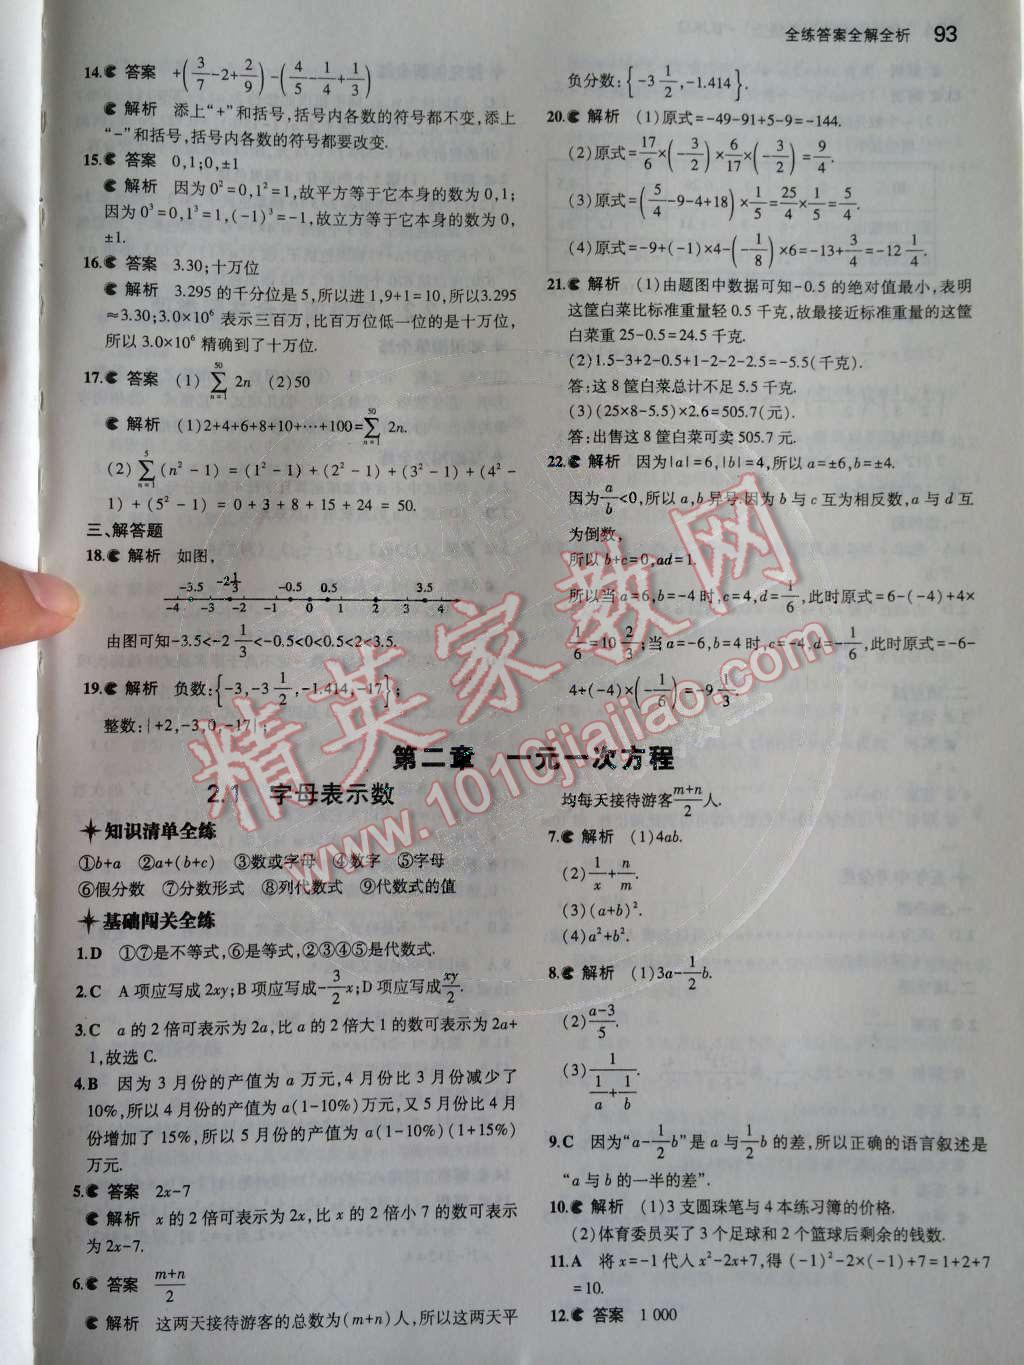 全练答案全解全析 93
14. 答案 +(3/7-2+2/9)-(4/5-1/4+1/3)
解析 添上“+”和括号,括号内各数的符号都不变,添上
“-”和括号,括号内各数的符号都要改变.
15. 答案 0,1;0,±1
解析 因为0²=0,1²=1,故平方等于它本身的数为0,1;
因为0³=0,1³=1,(-1)³=-1,故立方等于它本身的数为0,
±1.
16. 答案 3.30;十万位
解析 3.295的千分位是5,所以进1,9+1=10,所以3.295
≈3.30;3.0×10⁶表示三百万,比百万位低一位的是十万位,
所以3.0×10⁶精确到了十万位.
17. 答案 (1)∑(n=1→50) 2n (2)50
解析 (1)2+4+6+8+10+⋯+100=∑(n=1→50) 2n.
(2)∑(n=1→5)(n²-1)=(1²-1)+(2²-1)+(3²-1)+(4²-
1)+(5²-1)=0+3+8+15+24=50.
三、解答题
18. 解析 如图,
-3.5 -2 1/3 -0.5 0.5 3.5
-4 -3 -2 -1 0 1 2 3 4
由图可知-3.5<-2 1/3<-0.5<0<0.5<2<3.5.
19. 解析 负数:{-3,-3 1/2,-1.414,-17};
整数:{+2,-3,0,-17};
负分数:{-3 1/2,-1.414}.
20. 解析 (1)原式=-49-91+5-9=-144.
(2)原式=17/6×(-3/2)×6/17×(-3/2)=9/4.
(3)原式=(5/4-9-4+18)×1/5=25/4×1/5=5/4.
(4)原式=-9+(-1)×4-(-1/8)×6=-13+3/4=-12 1/4.
21. 解析 (1)由题图中数据可知-0.5的绝对值最小,表明
这筐白菜比标准重量轻0.5千克,故最接近标准重量的这筐
白菜重25-0.5=24.5千克.
(2)1.5-3+2-0.5+1-2-2-2.5=-5.5(千克).
答:这8筐白菜总计不足5.5千克.
(3)(25×8-5.5)×2.6=505.7(元).
答:出售这8筐白菜可卖505.7元.
22. 解析 因为|a|=6,|b|=4,所以a=±6,b=±4.
因为a/b<0,所以a,b异号.因为b与c互为相反数,a与d互
为倒数,
所以b+c=0,ad=1.
所以当a=6,b=-4时,c=4,d=1/6,此时原式=6-(-4)+4×
1/6=10 2/3;当a=-6,b=4时,c=-4,d=-1/6,此时原式=-6-
4+(-4)×(-1/6)=-9 1/3.
第二章 一元一次方程
2.1 字母表示数
知识清单全练
①b+a ②a+(b+c) ③数或字母 ④数字 ⑤字母
⑥假分数 ⑦分数形式 ⑧列代数式 ⑨代数式的值
基础闯关全练
1.D ①⑦是不等式,⑥是等式,②③④⑤是代数式.
2.C A项应写成2xy;B项应写成-3/2x;D项应写成xy/2.
3.C a的2倍可表示为2a,比a的2倍大1的数可表示为2a+
1,故选C.
4.B 因为3月份的产值为a万元,4月份比3月份减少了
10%,所以4月份的产值为a(1-10%)万元,又5月份比4月
份增加了15%,所以5月份的产值为a(1-10%)(1+15%)
万元.
5. 答案 2x-7
解析 x的2倍可表示为2x,比x的2倍小7的数可表示
为2x-7.
6. 答案 (m+n)/2
解析 这两天接待游客的总数为(m+n)人,所以这两天平
均每天接待游客(m+n)/2人.
7. 解析 (1)4ab.
(2)1/x+n/m.
(3)(a+b)².
(4)a²+b².
8. 解析 (1)3a-1/2b.
(2)(a-3)/5.
(3)1/(1/a+1/b)
9.C 因为“a-1/2b”是a与1/2b的差,所以正确的语言叙述是
“a与b的一半的差”.
10. 解析 (1)3支圆珠笔与4本练习簿的价格.
(2)体育委员买了3个足球和2个篮球后剩余的钱数.
11.A 将x=-1代人x²-2x+7,得(-1)²-2×(-1)+7=1+2+7
=10.
12. 答案 1 000
精英家教网
www.1010jiajiao.com